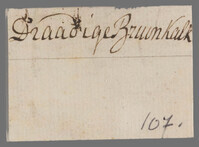 Draadige Bruin Kalk
107.